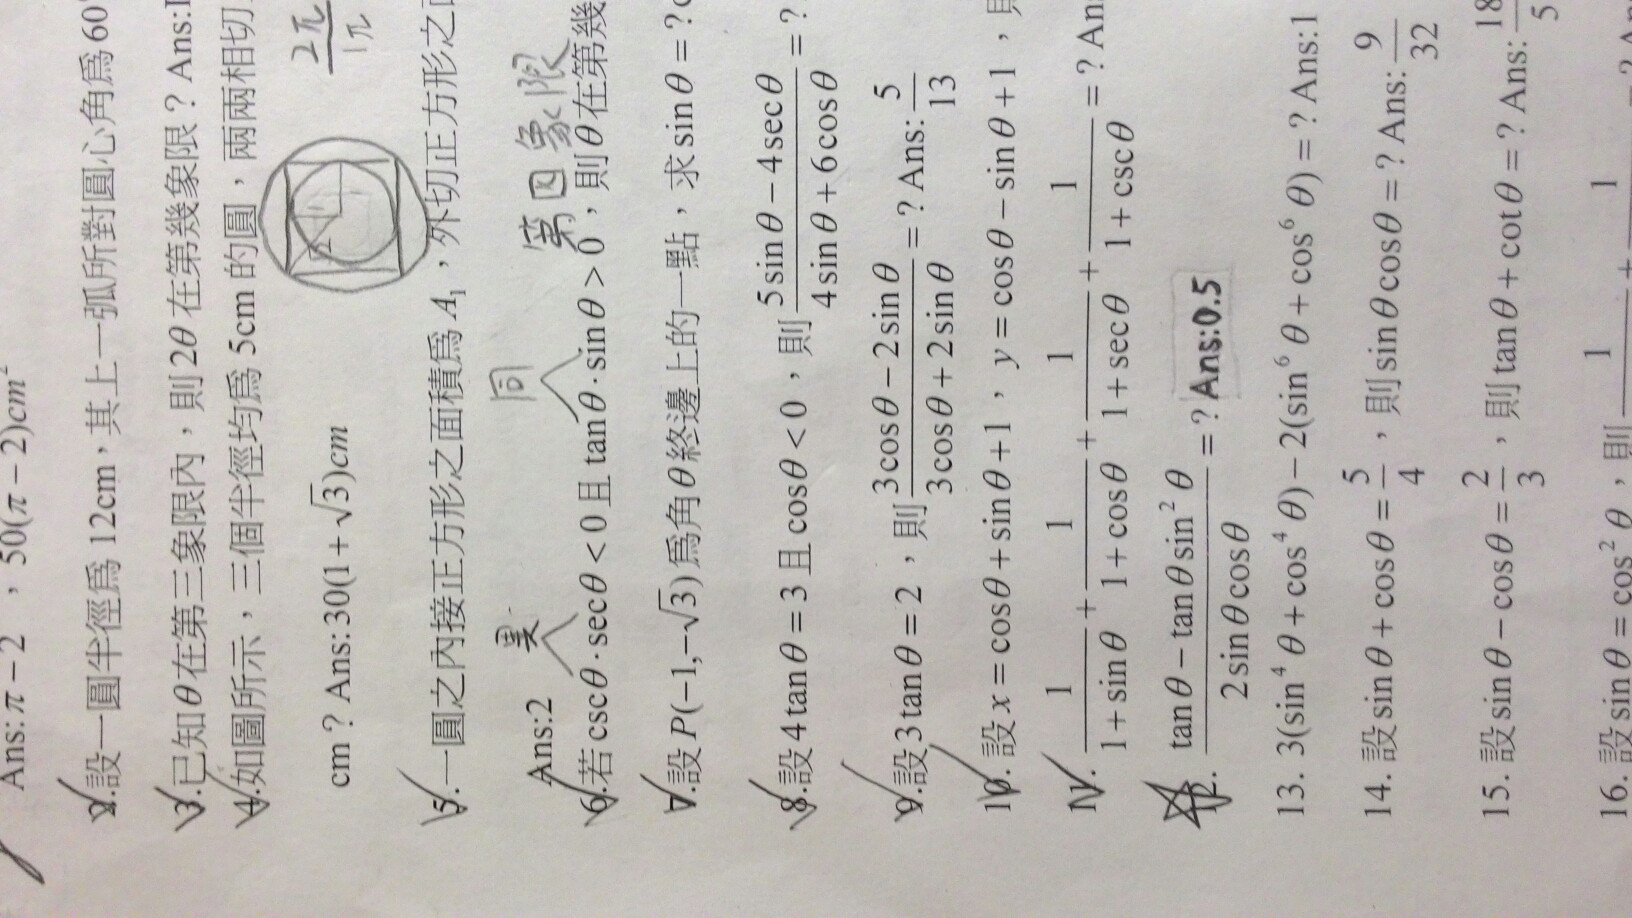 Ans: π − 2 , 50(π − 2)cm²
2. 設一圓半徑爲 12cm，其上一弧所對圓心角爲 60
3. 已知θ在第三象限內，則 2θ 在第幾象限？Ans:
4. 如圖所示，三個半徑均爲 5cm 的圓，兩兩相切
2π
1π
cm？Ans: 30(1+√3)cm
5. 一圓之內接正方形之面積爲 A₁，外切正方形之
Ans:2
異 同 第四象限
6. 若 cscθ·secθ < 0 且 tanθ·sinθ > 0，則θ在第幾
7. 設 P(−1,−√3) 爲角θ終邊上的一點，求 sinθ = ?
8. 設 4tanθ = 3 且 cosθ < 0，則 (5sinθ − 4secθ)/(4sinθ + 6cosθ) = ?
9. 設 3tanθ = 2，則 (3cosθ − 2sinθ)/(3cosθ + 2sinθ) = ? Ans: 5/13
10. 設 x = cosθ + sinθ + 1，y = cosθ − sinθ + 1，
11. 1/(1+sinθ) + 1/(1+cosθ) + 1/(1+secθ) + 1/(1+cscθ) = ? An
12. (tanθ − tanθ sin²θ)/(2sinθcosθ) = ? Ans:0.5
13. 3(sin⁴θ + cos⁴θ) − 2(sin⁶θ + cos⁶θ) = ? Ans:1
14. 設 sinθ + cosθ = 5/4，則 sinθcosθ = ? Ans: 9/32
15. 設 sinθ − cosθ = 2/3，則 tanθ + cotθ = ? Ans: 18/5
16. 設 sinθ = cos²θ，則 1 + 1